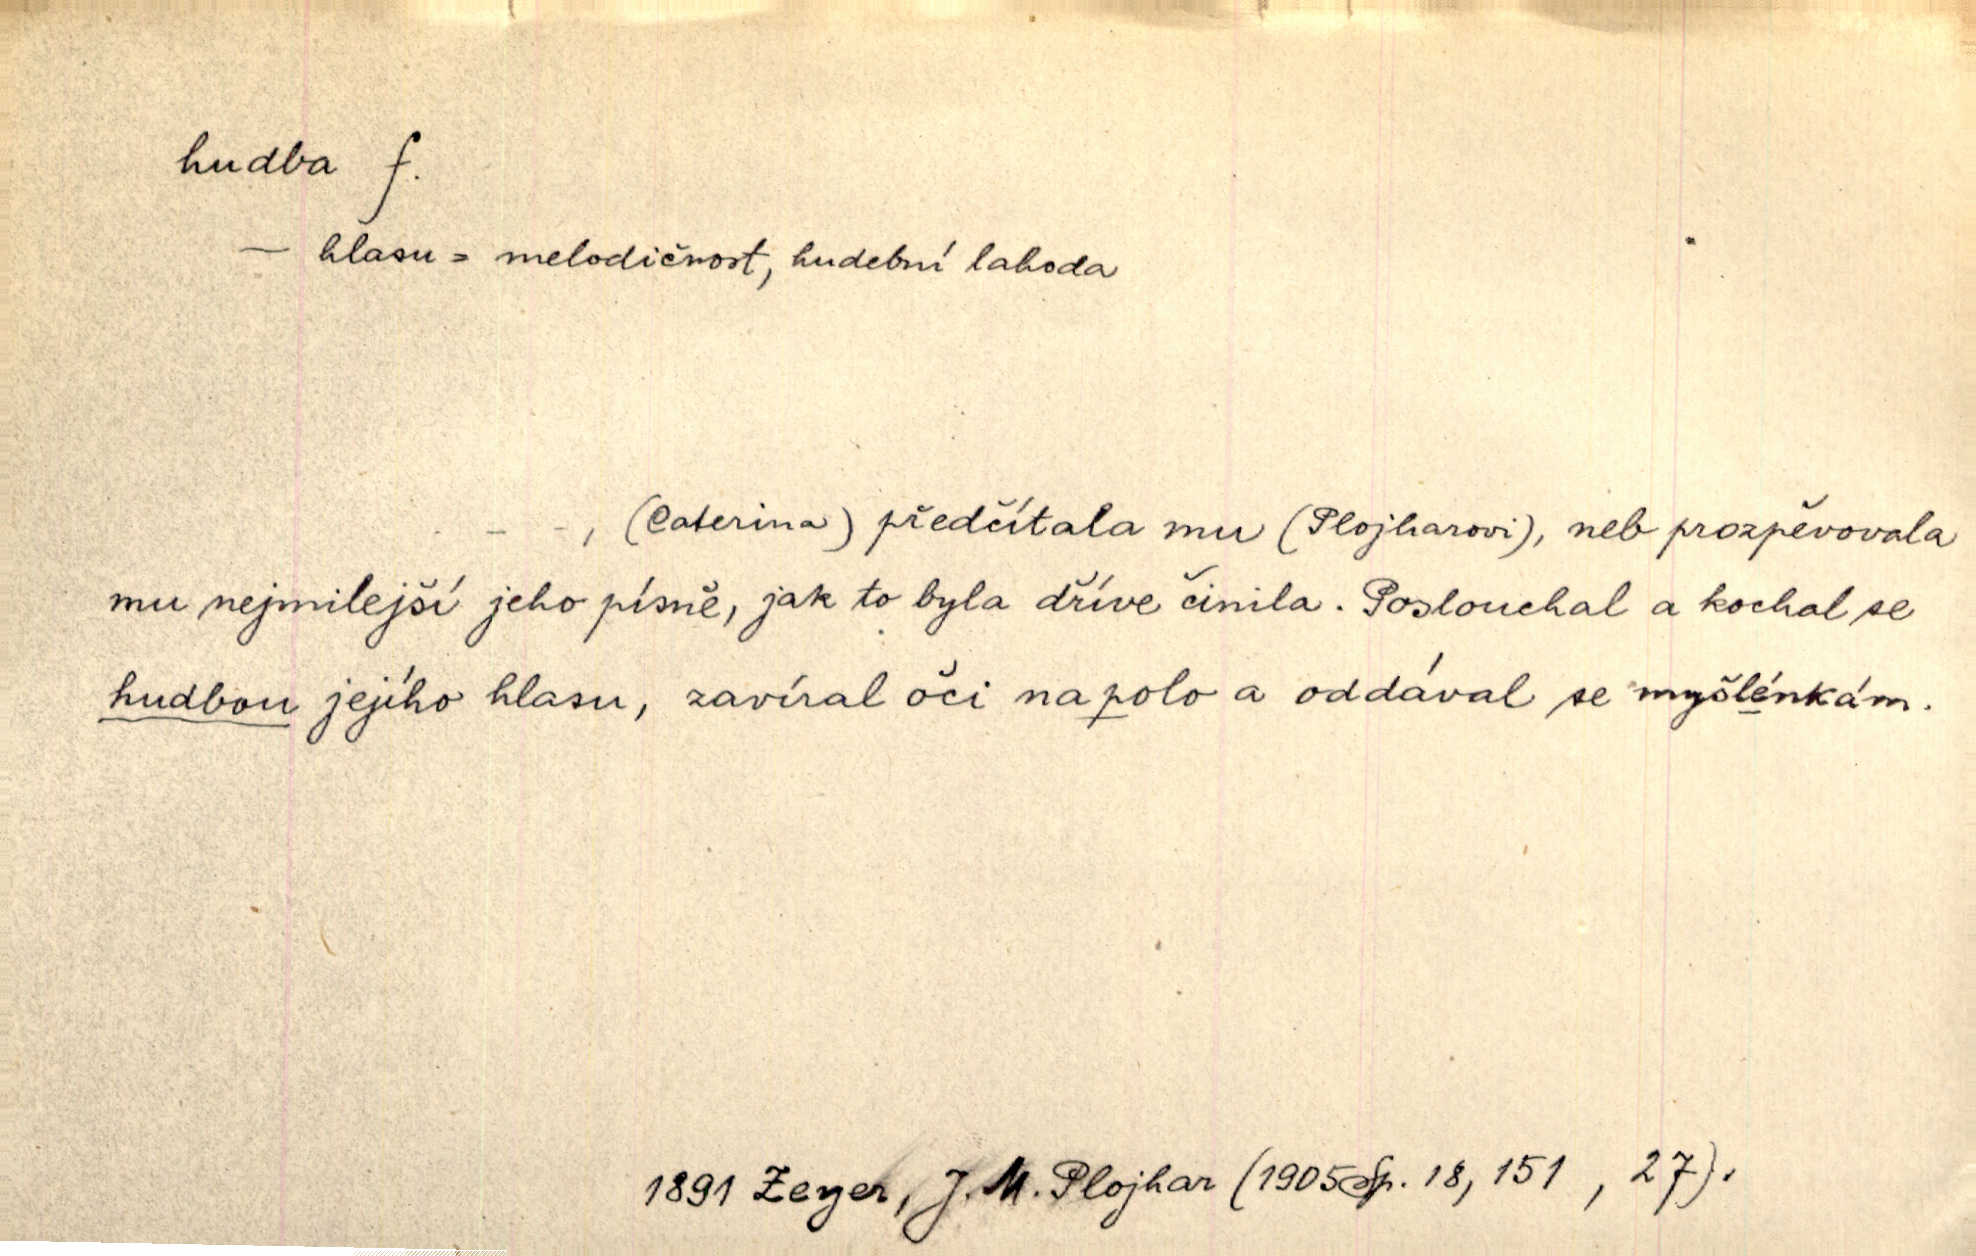 hudba f.
— hlasu = melodičnost, hudební lahoda
- -, (Caterina) předčítala mu (Plojharovi), neb prozpěvovala
mu nejmilejší jeho písně, jak to byla dříve činila. Poslouchal a kochal se
hudbou jejího hlasu, zavíral oči na polo a oddával se myšlénkám.
1891 Zeyer, J. M. Plojhar (1905 Sp. 18, 151 , 27).